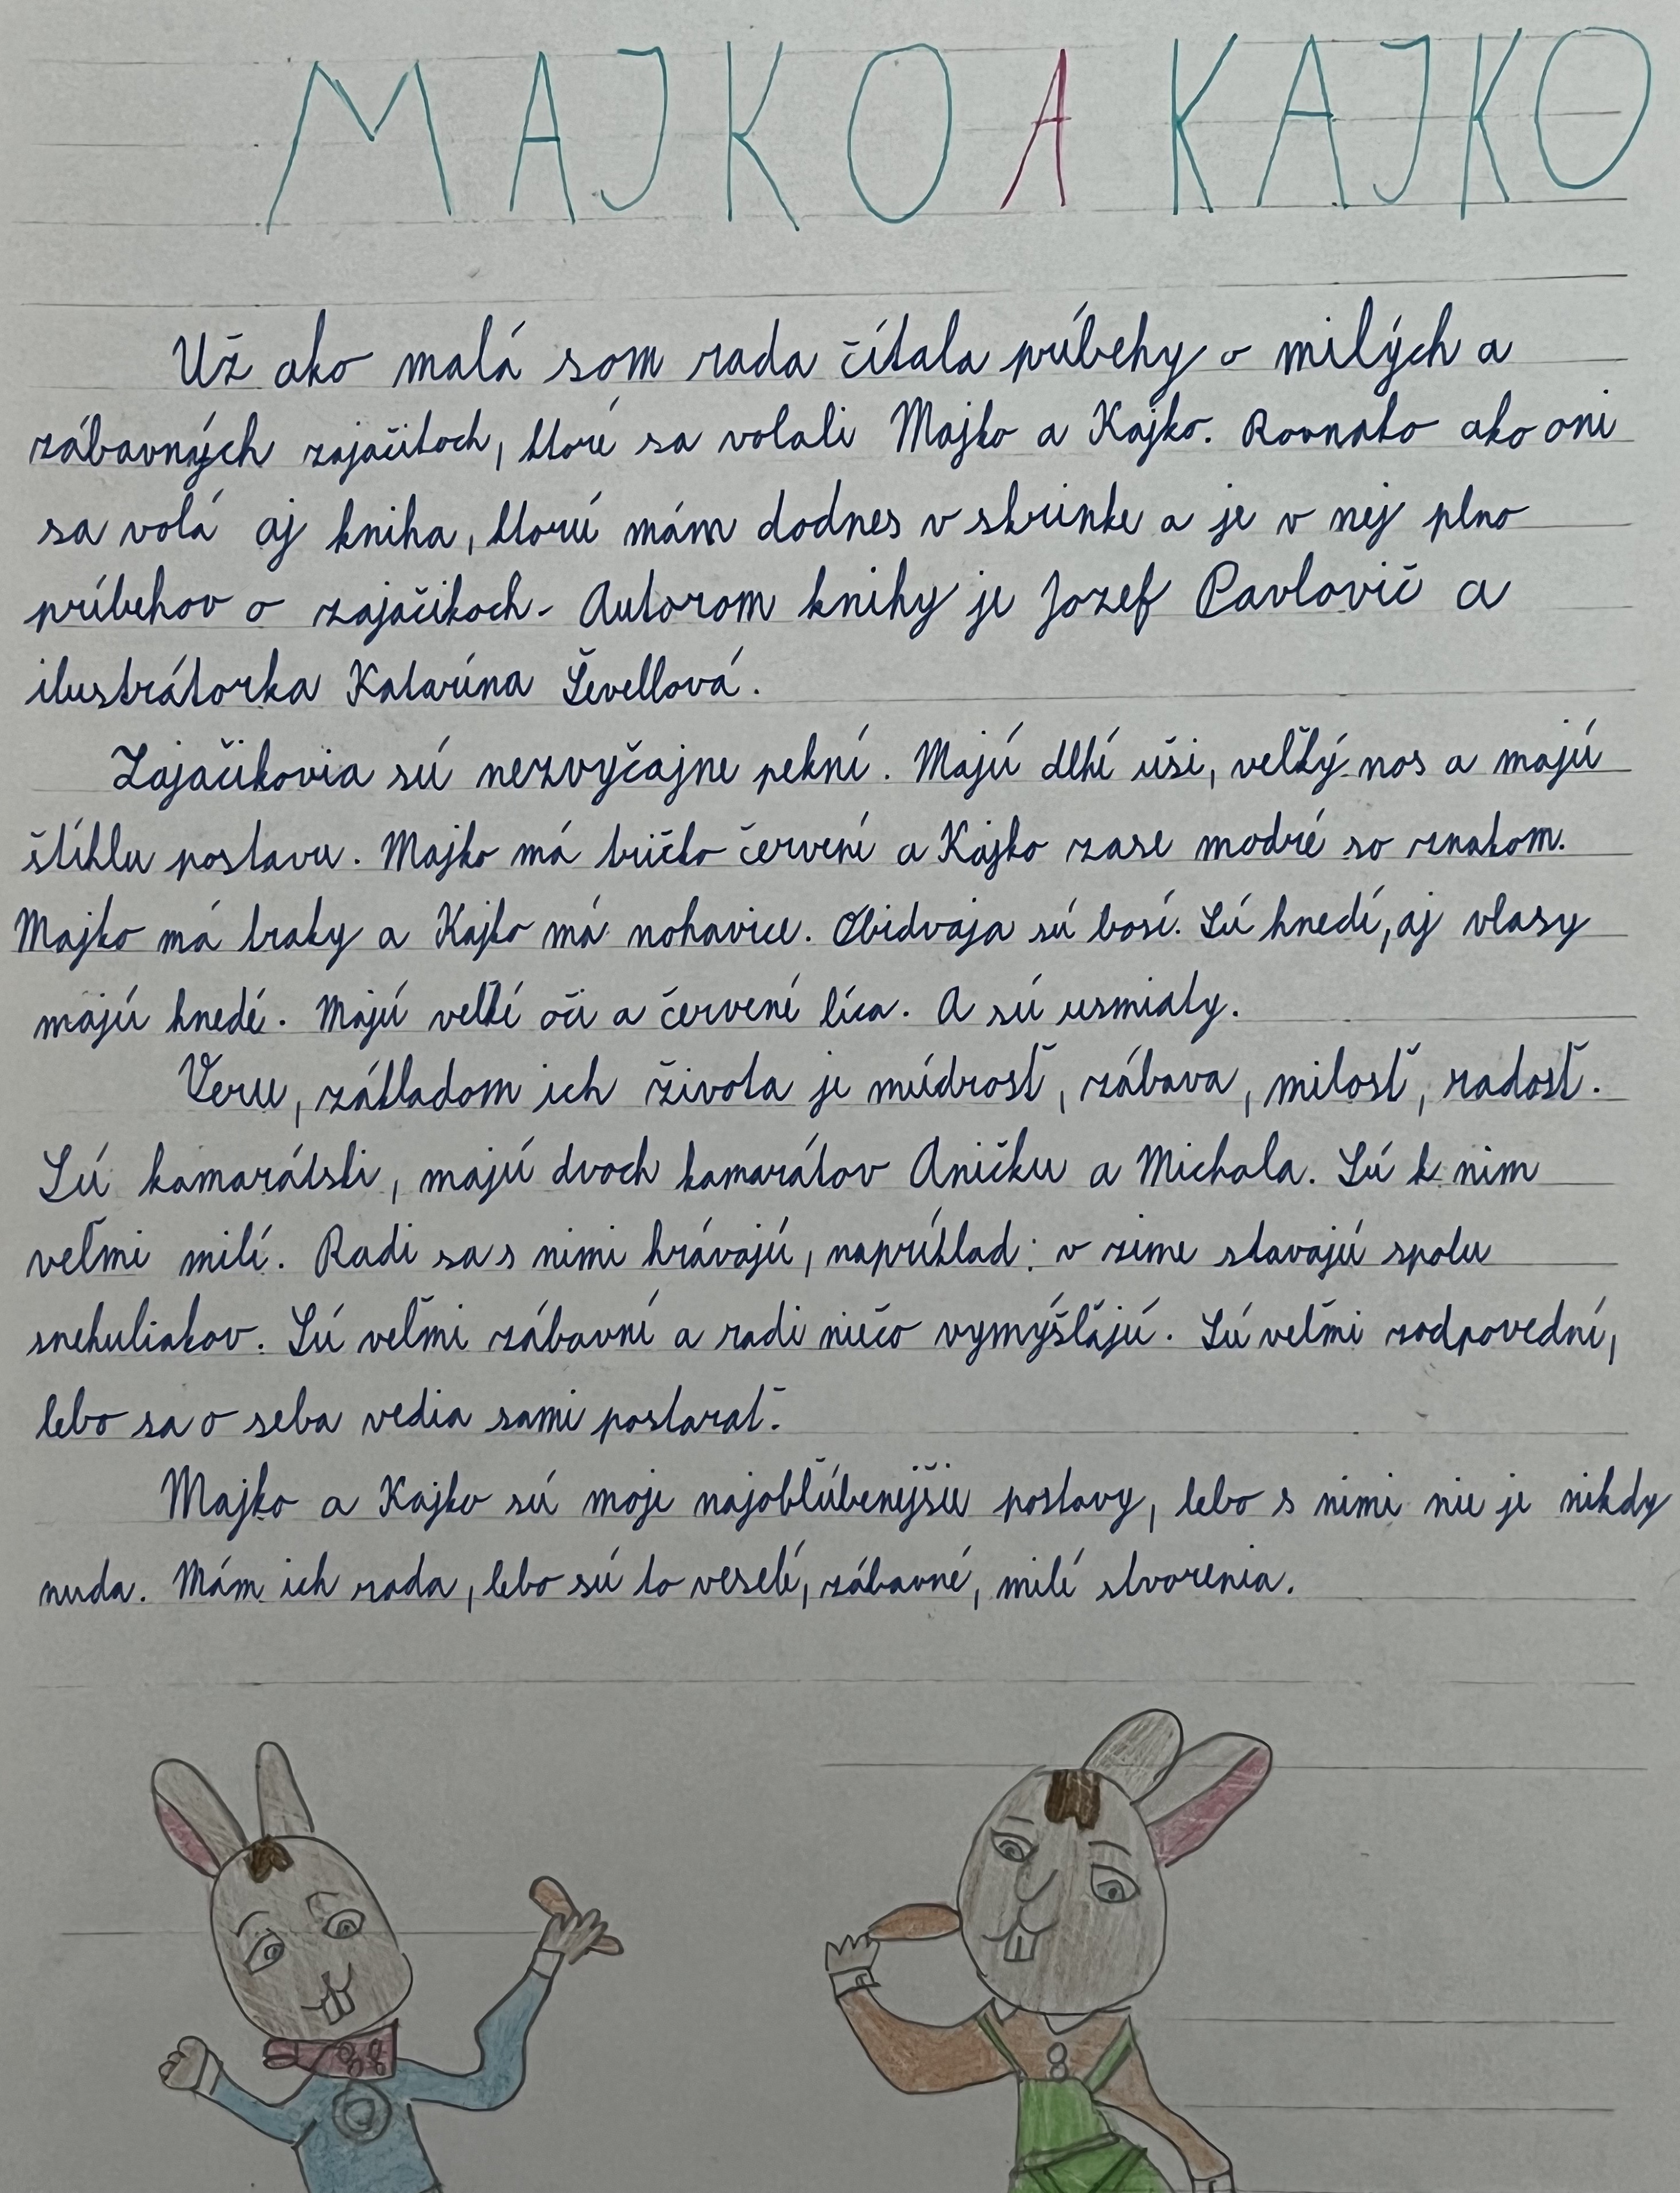 MAJKO A KAJKO
Už ako malá som rada čítala príbehy o milých a
zábavných zajačikoch, ktoré sa volali Majko a Kajko. Rovnako ako oni
sa volá aj kniha, ktorú mám dodnes v skrinke a je v nej plno
príbehov o zajačikoch. Autorom knihy je Jozef Pavlovič a
ilustrátorka Katarína Ševellová.
Zajačikovia sú nezvyčajne pekní. Majú dlhé uši, veľký nos a majú
štíhlu postavu. Majko má tričko červené a Kajko zase modré so znakom.
Majko má traky a Kajko má nohavice. Obidvaja sú bosí. Sú hnedí, aj vlasy
majú hnedé. Majú veľké oči a červené líca. A sú usmiaty.
Veru, základom ich života je múdrosť, zábava, milosť, radosť.
Sú kamarátski, majú dvoch kamarátov Aničku a Michala. Sú k nim
veľmi milí. Radi sa s nimi hrávajú, napríklad: v zime stavajú spolu
snehuliakov. Sú veľmi zábavní a radi niečo vymýšľajú. Sú veľmi zodpovední,
lebo sa o seba vedia sami postarať.
Majko a Kajko sú moje najobľúbenejšie postavy, lebo s nimi nie je nikdy
nuda. Mám ich rada, lebo sú to veselé, zábavné, milé stvorenia.